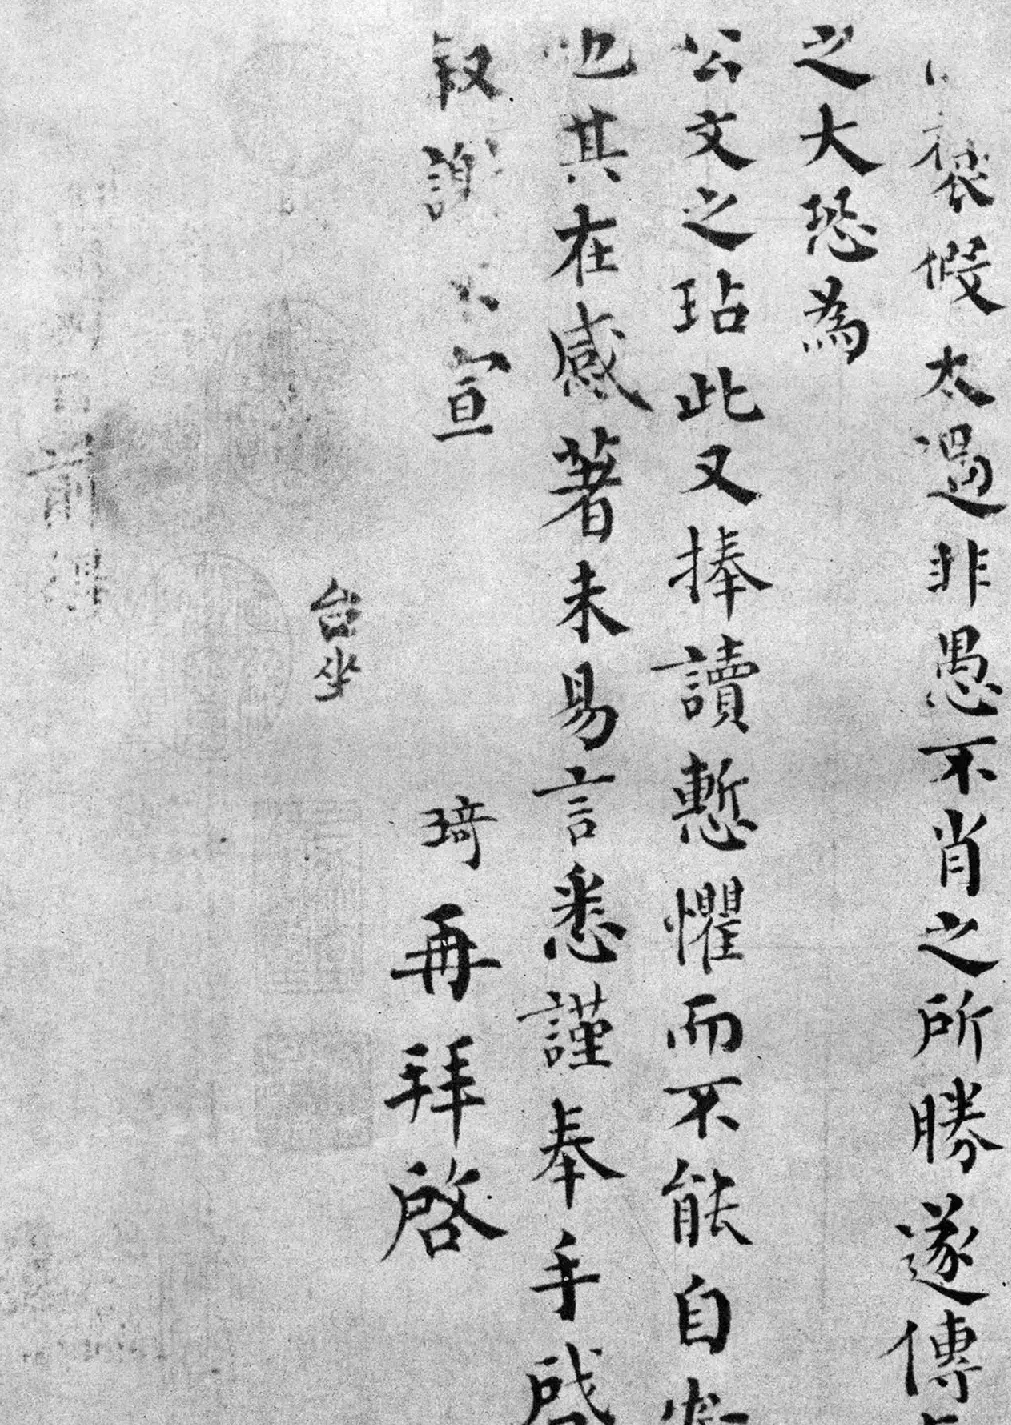 褒假太過非愚不肖之所勝遂傳
之大恐為
公文之玷此又捧讀慙懼而不能自
也其在感著未易言悉謹奉手啓
叙謝不宣 琦再拜啓
台坐
前